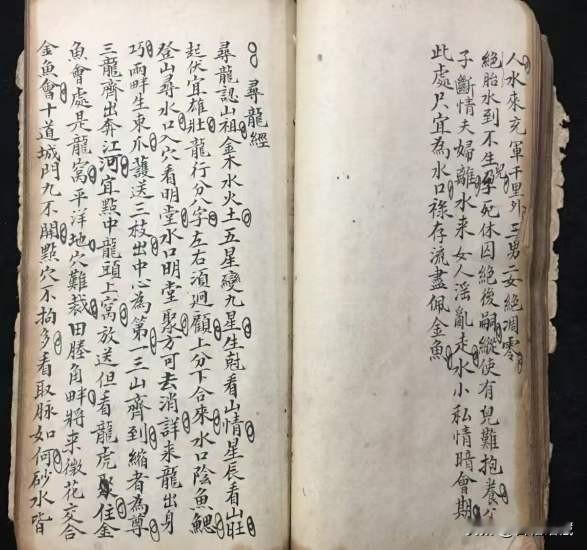 人水來充軍千里外三男二女絕凋零
絕胎水到不生兒孕死休囚絕後嗣縱使有兒難抱養父
子斷情夫婦離水來女人淫亂走水小私情暗會期
此處只宜為水口祿存流盡佩金魚
尋龍經
尋龍認山祖金木水火土五星變九星生尅看山情星辰看山壯
起伏宜雄壯龍行分八字左右須迴顧上分下合來水口陰魚鰓
登山尋水口入穴看明堂水口明堂聚方可去消詳来龍出身
巧兩畔生東爪護送三枝出中心為第一三山齊到縮者為尊
三龍齊出奔江河宜點中龍頭上窩放送但看龍虎住金
魚會處是龍窩平洋地穴難裁田塍角畔將來微花交合
金魚會十道城門九不開點穴不拘多看取脉如何砂水皆